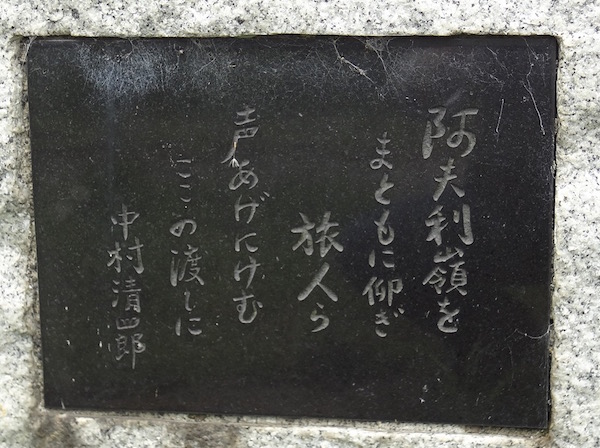 阿夫利嶺を
まともに仰ぎ
旅人ら
声あげにけむ
ここの渡しに
中村清四郎